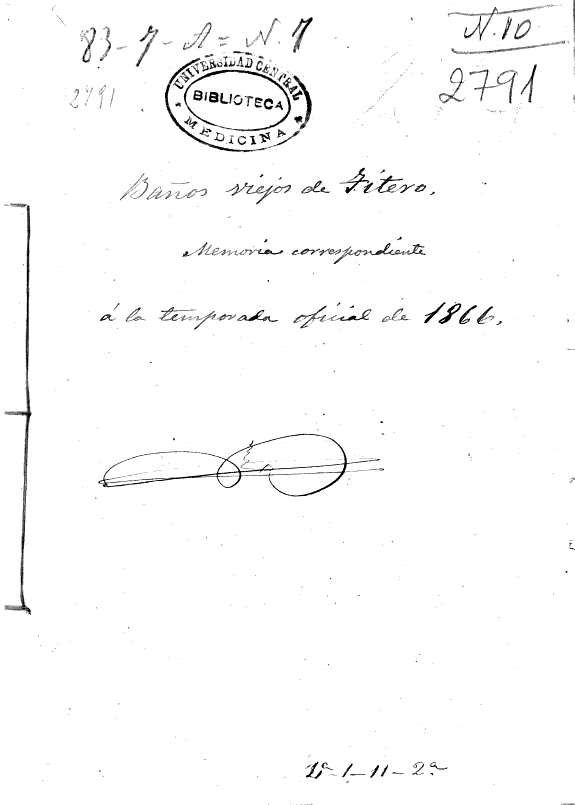 83-7-A=N.7
N.10
2791
2791
UNIVERSIDAD CENTRAL
BIBLIOTECA
MEDICINA
Baños viejos de Fitero.
Memoria correspondiente
á la temporada oficial de 1866.
1-11-2ª